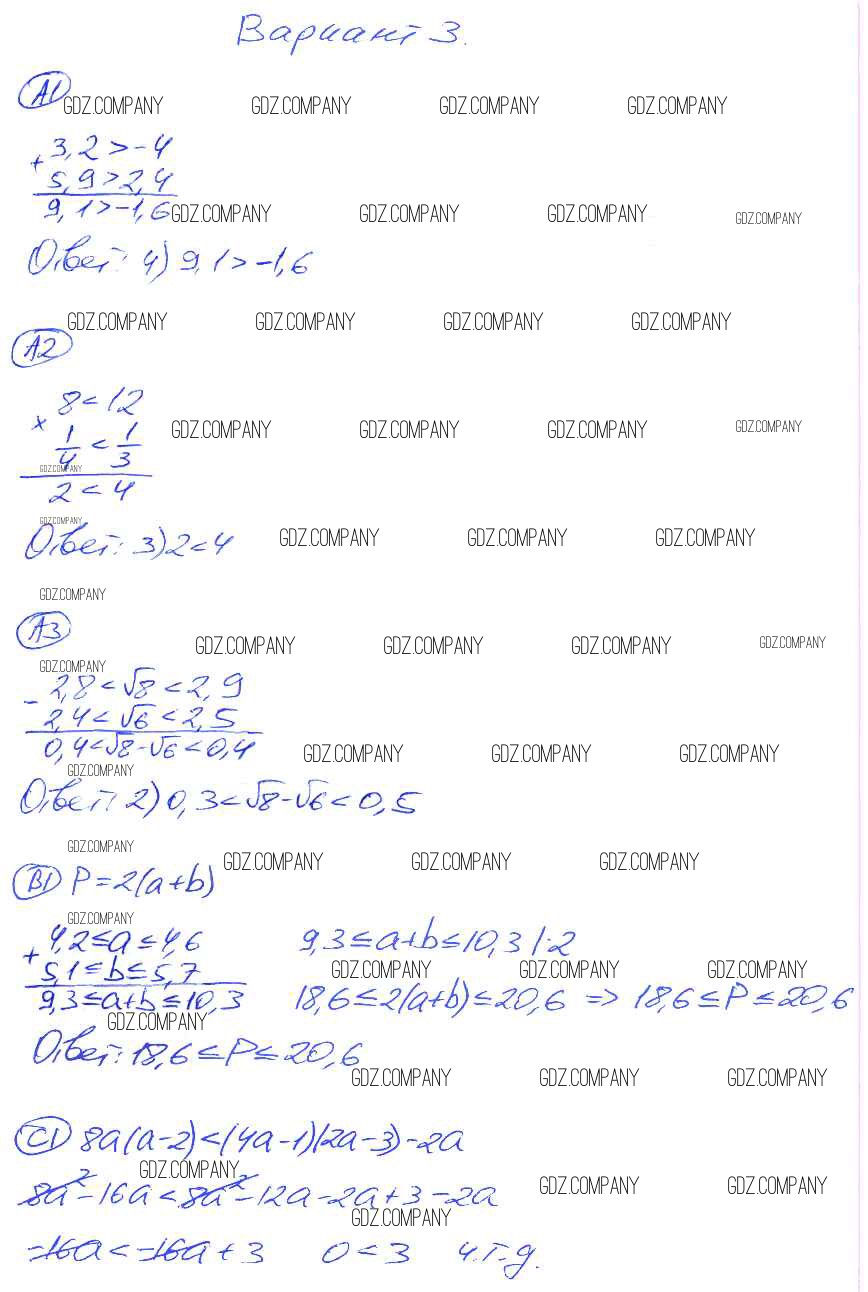 Вариант 3.
A1
GDZ.COMPANY GDZ.COMPANY GDZ.COMPANY GDZ.COMPANY
+ 3,2 > -4
5,9 > 2,4
9,1 > -1,6 GDZ.COMPANY GDZ.COMPANY GDZ.COMPANY GDZ.COMPANY
Ответ: 4) 9,1 > -1,6
GDZ.COMPANY GDZ.COMPANY GDZ.COMPANY GDZ.COMPANY
A2
× 8 < 12
1/4 < 1/3 GDZ.COMPANY GDZ.COMPANY GDZ.COMPANY GDZ.COMPANY
GDZ.COMPANY
2 < 4
GDZ.COMPANY
Ответ: 3) 2 < 4 GDZ.COMPANY GDZ.COMPANY GDZ.COMPANY
GDZ.COMPANY
A3
GDZ.COMPANY GDZ.COMPANY GDZ.COMPANY GDZ.COMPANY
GDZ.COMPANY
- 2,8 < √8 < 2,9
2,4 < √6 < 2,5
0,4 < √8 - √6 < 0,4 GDZ.COMPANY GDZ.COMPANY GDZ.COMPANY
GDZ.COMPANY
Ответ: 2) 0,3 < √8 - √6 < 0,5
GDZ.COMPANY
GDZ.COMPANY GDZ.COMPANY GDZ.COMPANY
B1 P = 2(a+b)
GDZ.COMPANY
+ 4,2 ≤ a ≤ 4,6 9,3 ≤ a+b ≤ 10,3 |·2
5,1 ≤ b ≤ 5,7 GDZ.COMPANY GDZ.COMPANY GDZ.COMPANY
9,3 ≤ a+b ≤ 10,3 18,6 ≤ 2(a+b) ≤ 20,6 => 18,6 ≤ P ≤ 20,6
GDZ.COMPANY
Ответ: 18,6 ≤ P ≤ 20,6
GDZ.COMPANY GDZ.COMPANY GDZ.COMPANY
C1 8a(a-2) < (4a-1)(2a-3) - 2a
GDZ.COMPANY
8a² - 16a < 8a² - 12a - 2a + 3 - 2a GDZ.COMPANY GDZ.COMPANY
GDZ.COMPANY
-16a < -16a + 3 0 < 3 ч.т.д.